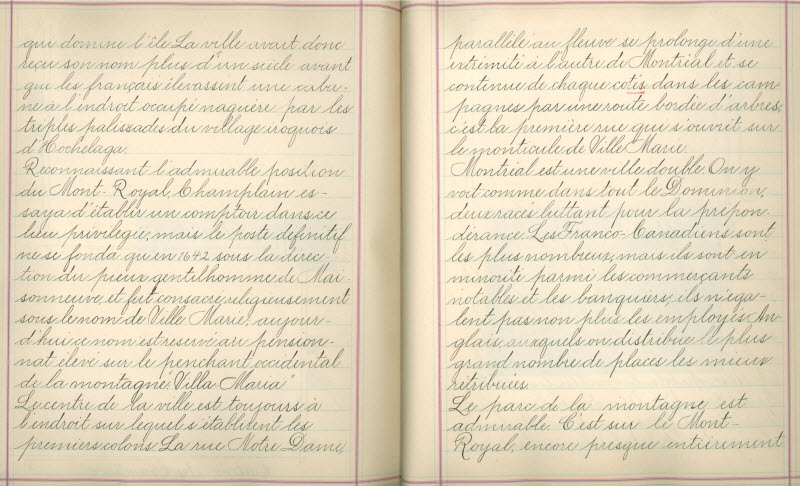 qui domine l'île La ville avait donc
reçu son nom plus d'un siècle avant
que les français élevassent une caba-
ne à l'endroit occupé naguère par les
triples palissades du village iroquois
d'Hochelaga.
Reconnaissant l'admirable position
du Mont-Royal, Champlain es-
saya d'établir un comptoir dans ce
lieu privilégié, mais le poste définitif
ne se fonda qu'en 1642 sous la direc-
tion du pieux gentilhomme de Mai-
sonneuve, et fut consacré religieusement
sous le nom de Ville Marie, aujour-
d'hui ce nom est réservé au pension-
nat élevé sur le penchant occidental
de la montagne. Villa Maria
Le centre de la ville est toujours à
l'endroit sur lequel s'établirent les
premiers colons. La rue Notre Dame,
parallèle au fleuve se prolonge d'une
extrémité à l'autre de Montréal et se
continue de chaque cotés dans les cam
pagnes par une route bordée d'arbres,
c'est la première rue qui s'ouvrit sur
le monticule de Ville Marie.
Montréal est une ville double. On y
voit comme dans tout le Dominion,
deux races luttant pour la prépon-
dérance. Les Franco-Canadiens sont
les plus nombreux, mais ils sont en
minorité parmi les commerçants
notables et les banquiers, ils n'éga-
lent pas non plus les employés An
glais, auxquels on distribue le plus
grand nombre de places les mieux
rétribuées.
Le parc de la montagne est
admirable. C'est sur le Mont-
Royal, encore presque entièrement